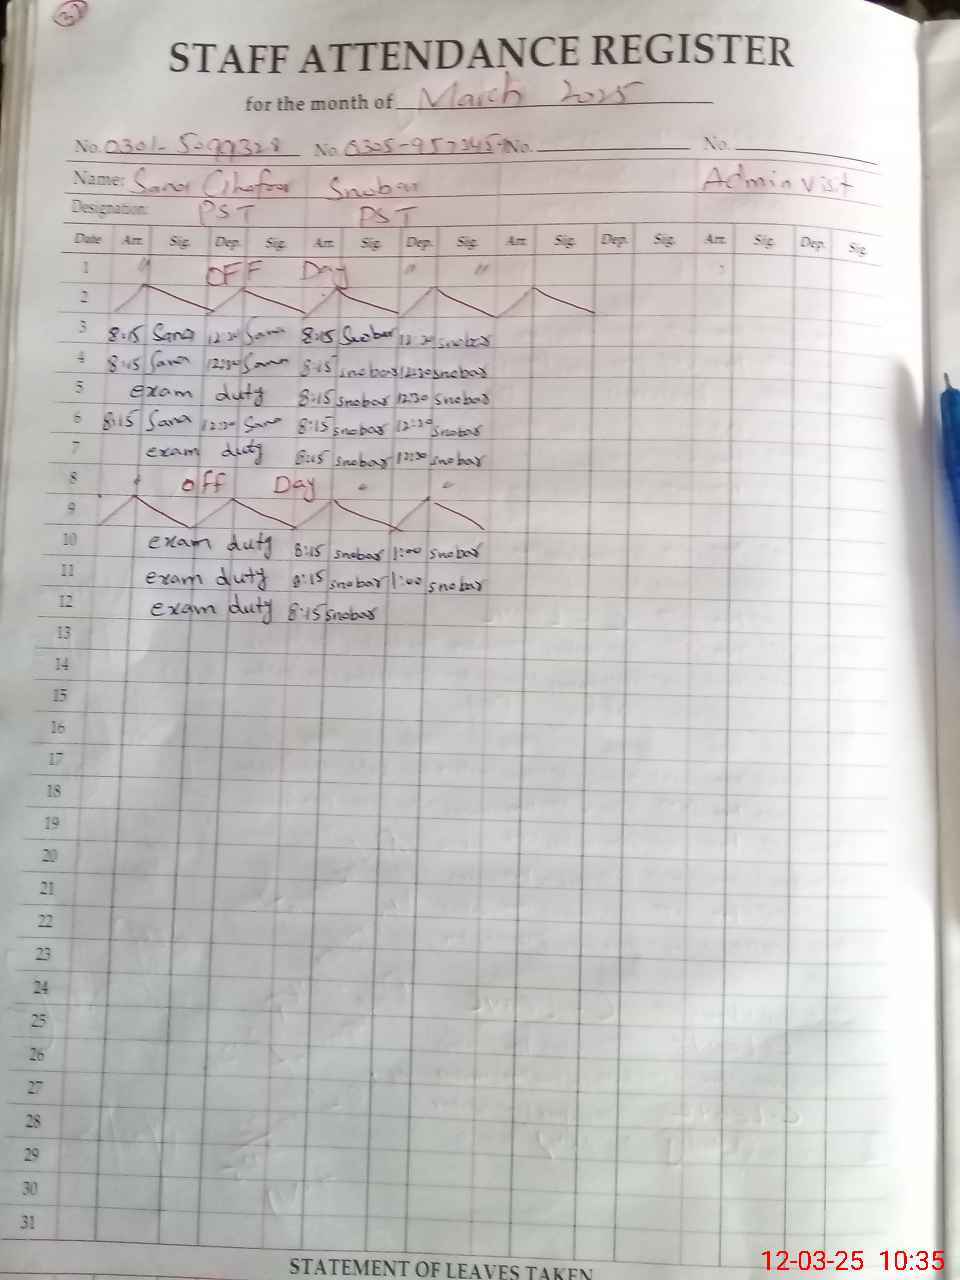 STAFF ATTENDANCE REGISTER
for the month of March 2025
No. 0301-5099328 No. 0305-9573459 No. No.
Name: Sana Ghafoor Snobar Admin visit
Designation: PST PST
Date Arr. Sig. Dep. Sig. Arr. Sig. Dep. Sig. Arr. Sig. Dep. Sig. Arr. Sig. Dep. Sig.
1 " OFF Day " "
2
3 8:15 Sana 12:30 Sana 8:15 Snobar 12:30 snobar
4 8:15 Sana 12:30 Sana 8:15 snobar 12:30 snobar
5 exam duty 8:15 snobar 12:30 snobar
6 8:15 Sana 12:30 Sana 8:15 snobar 12:30 snobar
7 exam duty 8:15 snobar 12:30 snobar
8 " off Day " "
9
10 exam duty 8:15 snobar 1:00 snobar
11 exam duty 8:15 snobar 1:00 snobar
12 exam duty 8:15 snobar
13
14
15
16
17
18
19
20
21
22
23
24
25
26
27
28
29
30
31
STATEMENT OF LEAVES TAKEN
12-03-25 10:35